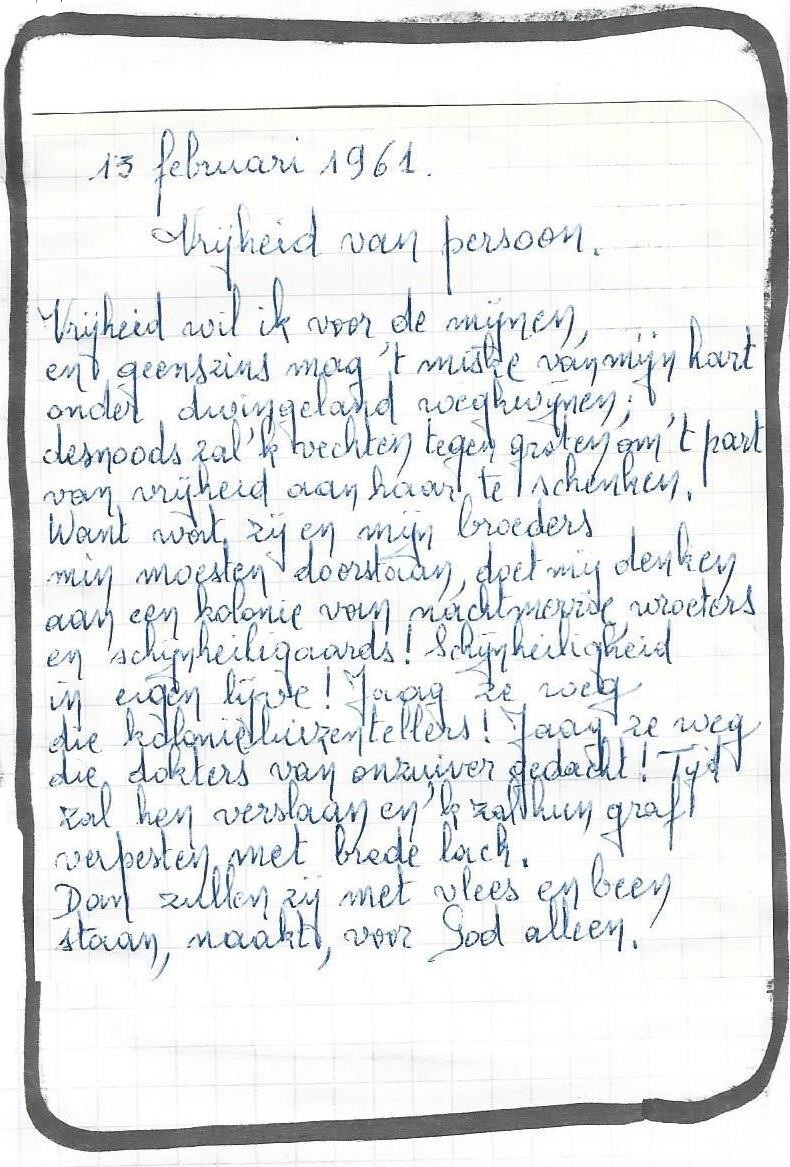 13 februari 1961.
Vrijheid van persoon.
Vrijheid wil ik voor de mijnen,
en geenszins mag 't van mijn hart
onder dwingeland wegkwijnen;
desnoods zal 'k vechten tegen groten om 't part
van vrijheid aan haar te schenken.
Want wat zij en mijn broeders
min moesten doorstaan, doet mij denken
aan een kolonie van nachtmerrie wroeters
en schijnheiligaards! Schijnheiligheid
in eigen lijve! Jaag ze weg
die kolonieluizentellers! Jaag ze weg
die dokters van onzuiver gedacht! Tijd
zal hen verslaan en 'k zal hun graf
verpesten met brede lach.
Dan zullen zij met vlees en been
staan, naakt, voor God alleen.